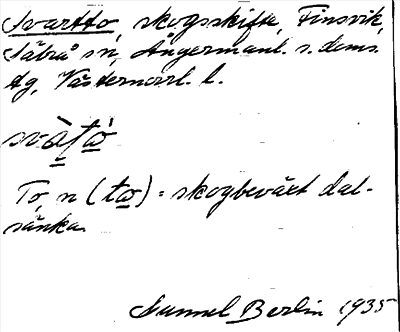 Svartto, skogsskifte, Finsvik,
Säbrå sn, Ångermanl. s. doms.
tg, Västernorrl. l.
svàtò
To, n (tω) = skogbeväxt dal-
sänka.
Samuel Berlin 1935